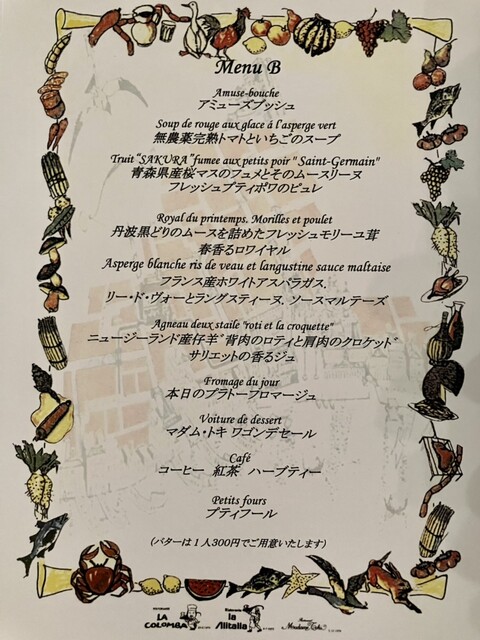 Menu B
Amuse-bouche
アミューズブッシュ
Soup de rouge aux glace á l'asperge vert
無農薬完熟トマトといちごのスープ
Truit "SAKURA" fumee aux petits poir " Saint-Germain"
青森県産桜マスのフュメとそのムースリーヌ
フレッシュプティポワのピュレ
Royal du printemps. Morilles et poulet
丹波黒どりのムースを詰めたフレッシュモリーユ茸
春香るロワイヤル
Asperge blanche ris de veau et langustine sauce maltaise
フランス産ホワイトアスパラガス.
リー・ド・ヴォーとラングスティーヌ. ソースマルテーズ
Agneau deux staile "roti et la croquette"
ニュージーランド産仔羊"背肉のロティと肩肉のクロケット"
サリエットの香るジュ
Fromage du jour
本日のプラトーフロマージュ
Voiture de dessert
マダム・トキ ワゴンデセール
Café
コーヒー 紅茶 ハーブティー
Petits fours
プティフール
(バターは1人300円でご用意いたします)
LA COLOMBA
la Alitalia